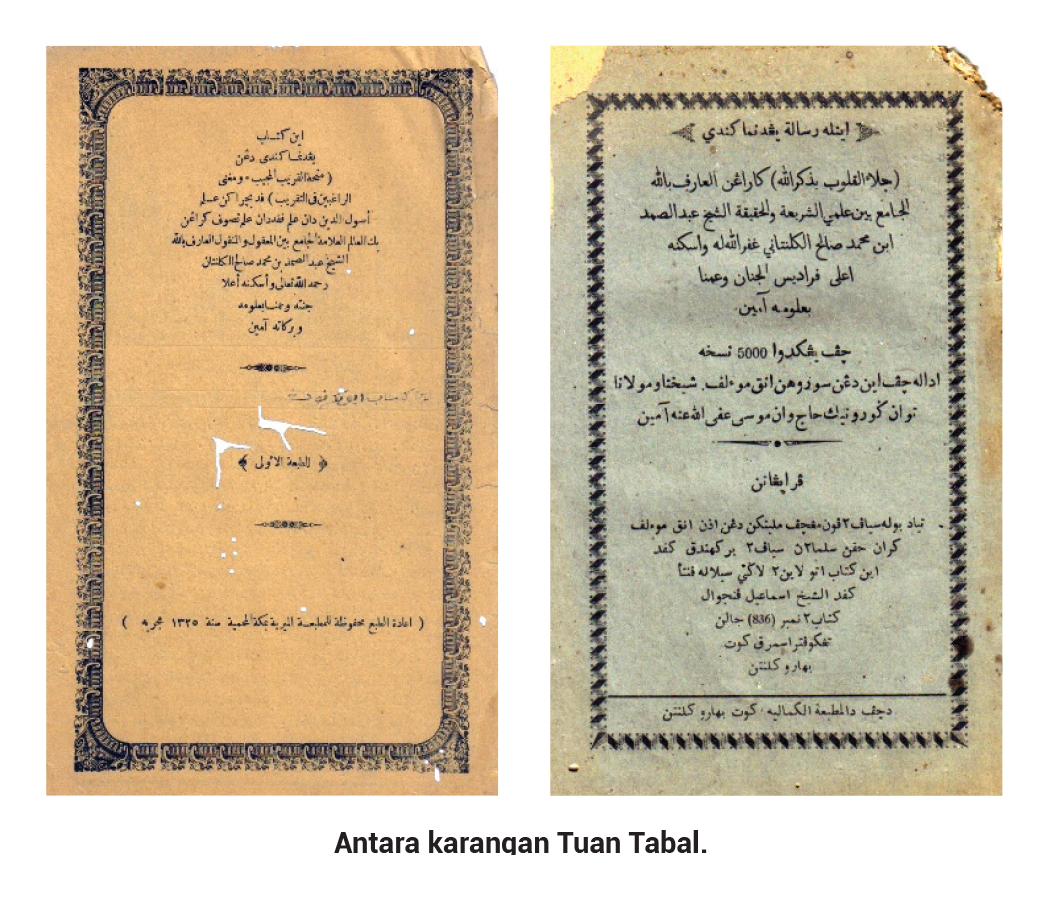 اين كتاب
يڠدنما كندى دڠن
( منحة القريب المجيب * ومغنى
الراغبين فى التقريب ) فد بچراكن علم
أصول الدين دان علم فقه دان علم تصوف كراڠن
بك العالم العلامة الجامع بين المعقول والمنقول العارف بالله
الشيخ عبد الصمد بن محمد صالح الكلنتان
رحمه الله تعالى وأسكنه أعلا
جنته وعمنا بعلومه
وبركاته آمين
كتاب اين
﴿ الطبعة الاولى ﴾
( اعادة الطبع محفوظة للمطبعة الميرية بمكة المحمية سنة ١٣٢٥ هجريه )
اينله رسالة يڠدنما كندي
(جلاء القلوب بذكر الله) كاراڠن العارف بالله
الجامع بين علمي الشريعة والحقيقة الشيخ عبد الصمد
ابن محمد صالح الكلنتاني غفر الله له واسكنه
اعلى فراديس الجنان وعمنا
بعلومه آمين.
چڤ يڠكدوا 5000 نسخه
اداله چڤ اين دڠن سوروهن انق موءلف. شيخنا ومولانا
توان ݢورو نيك حاج وان موسى عفى الله عنه آمين
ڤرايڠاتن
تياد بوله سياڤ٢ ڤون مڠچڤ ملينكن دڠن اذن انق موءلف
كران حقن سلمان٢ سياڤ٢ بركهندق كڤد
اين كتاب اتو لاين٢ لاݢي سيلاله ڤنتا
كڤد الشيخ اسماعيل ڤنجوال
كتاب٢ نمبر (836) جالن
تڠكو ڤترا سمرق كوت
بهارو كلنتن
دچڤ دالمطبعة الكماليه، كوت بهارو كلنتن
Antara karangan Tuan Tabal.